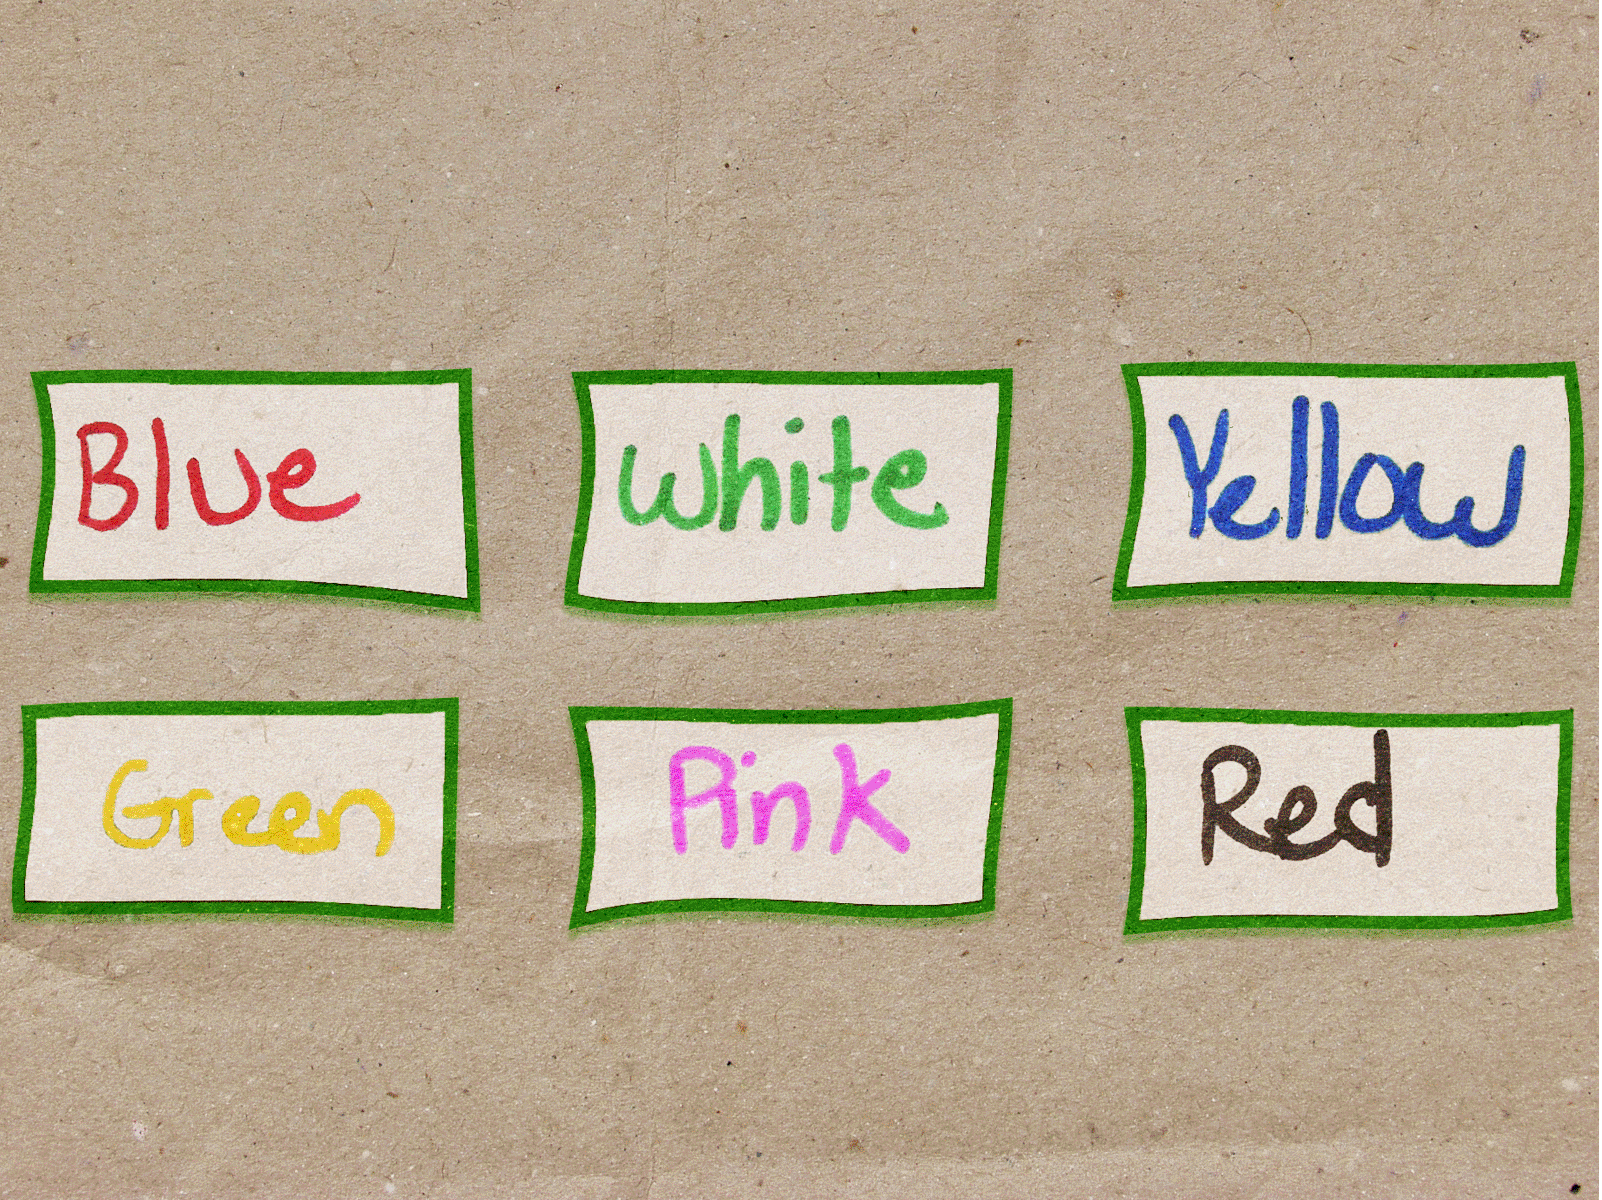 Blue white Yellow
Green Pink Red